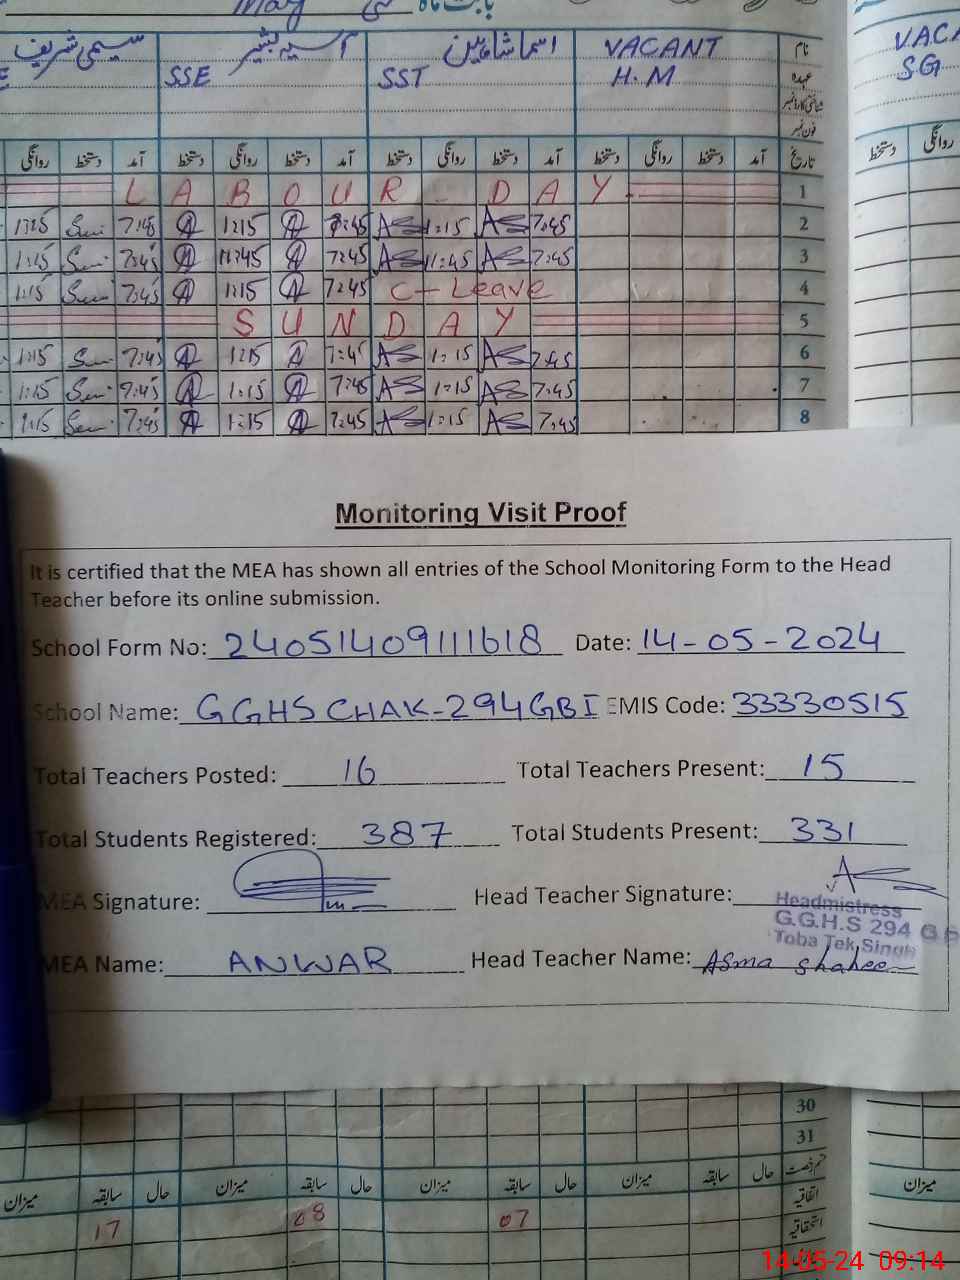 بابت ماہ مئی May
سیمی شریف آسیہ بشیر اسما شاہین VACANT نام VACA
SSE SST H.M عہدہ SG
شناختی کارڈ نمبر
فون نمبر
روانگی دستخط آمد دستخط روانگی دستخط آمد دستخط روانگی دستخط آمد دستخط روانگی دستخط آمد تاریخ دستخط روانگی
LABOUR DAY 1
1:15 7:45 1:15 7:45 AS 1:15 AS 7:45 2
1:15 7:45 11:45 7:45 AS 11:45 AS 7:45 3
1:15 7:45 1:15 7:45 C-Leave 4
SUNDAY 5
1:15 7:45 1:15 7:45 AS 1:15 AS 7:45 6
1:15 7:45 1:15 7:45 AS 1:15 AS 7:45 7
1:15 7:45 1:15 7:45 AS 1:15 AS 7:45 8
Monitoring Visit Proof
It is certified that the MEA has shown all entries of the School Monitoring Form to the Head
Teacher before its online submission.
School Form No: 24051409111618 Date: 14-05-2024
School Name: GGHS CHAK-294GBI EMIS Code: 33330515
Total Teachers Posted: 16 Total Teachers Present: 15
Total Students Registered: 387 Total Students Present: 331
MEA Signature: Head Teacher Signature: AS
Headmistress
G.G.H.S 294 GB
Toba Tek Singh
MEA Name: ANWAR Head Teacher Name: Asma Shaheen
30
31
میزان سابقہ حال میزان سابقہ حال میزان سابقہ حال میزان سابقہ حال قسم رخصت میزان
اتفاقیہ
17 08 07 استحقاقیہ
14-05-24 09:14